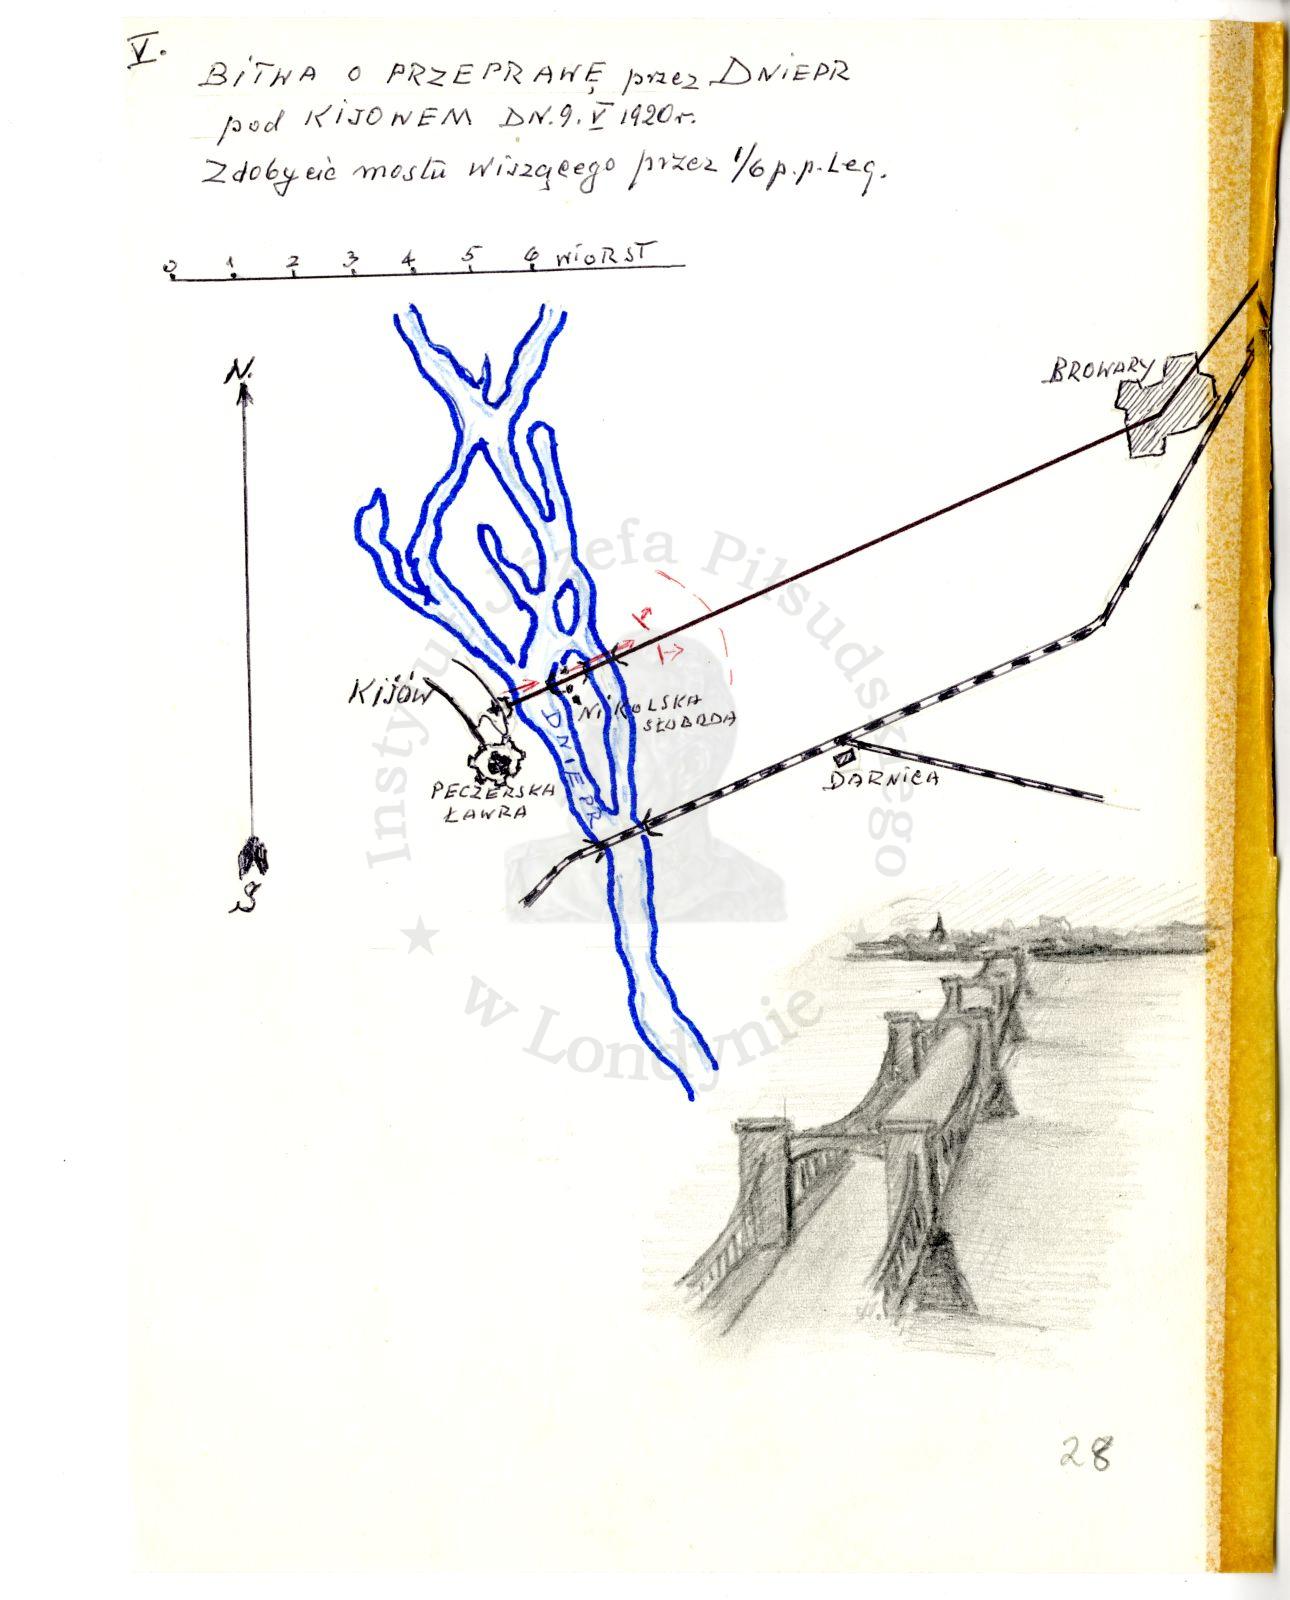 V.
BITWA O PRZEPRAWĘ przez DNIEPR
pod KIJOWEM DN. 9. V 1920 r.
Zdobycie mostu wiszącego przez 1/6 p.p. Leg.
0 1 2 3 4 5 6 WIORST
N.
BROWARY
KIJÓW
NIKOLSKA
SŁOBODA
DNIEPR
PECZERSKA
ŁAWRA
DARNICA
S
Instytut Józefa Piłsudskiego
w Londynie
28